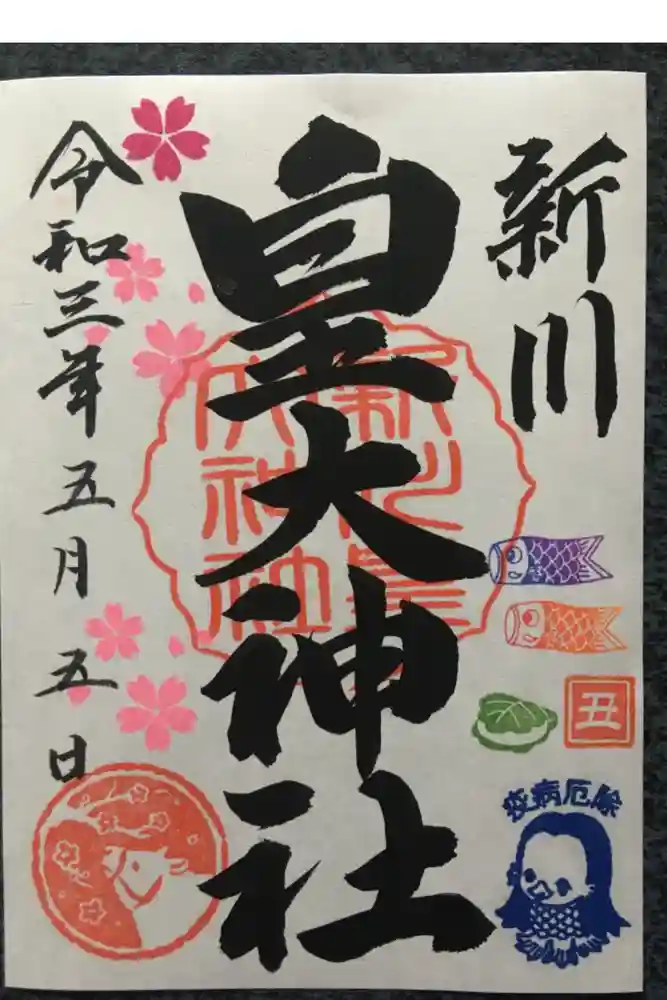 新川
皇大神社
令和三年五月五日
新川皇大神社
丑
疫病厄除